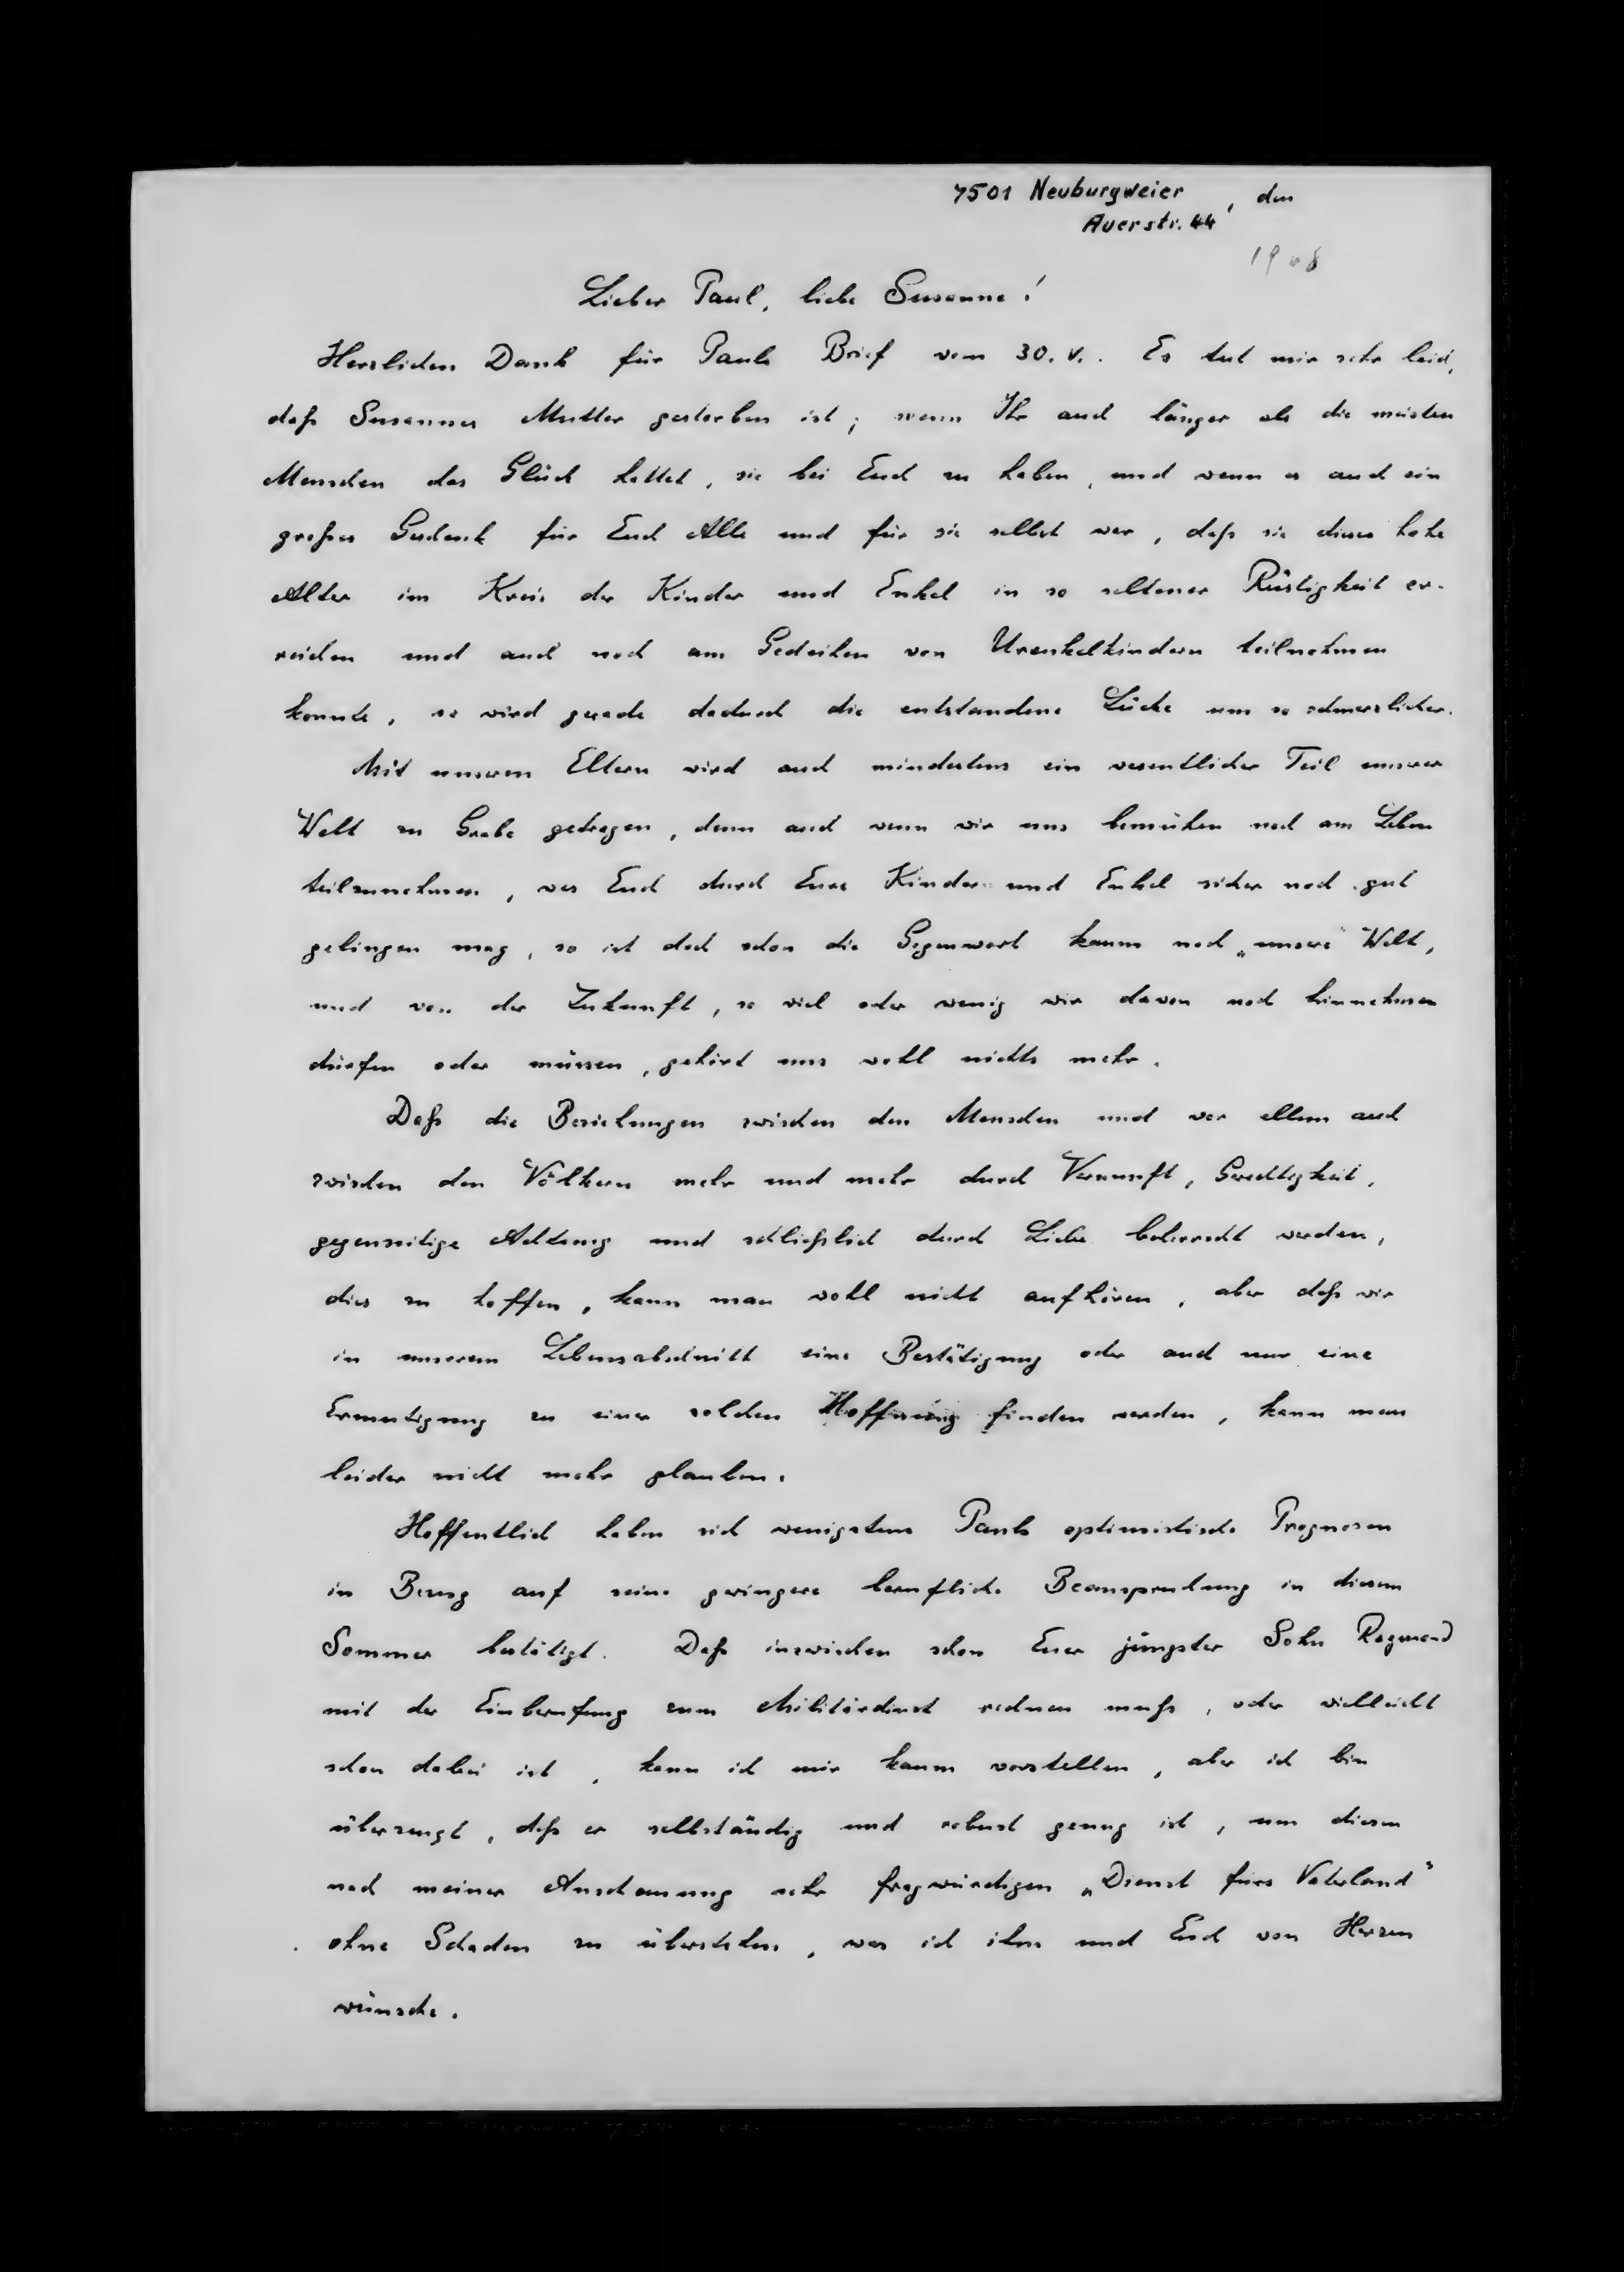 7501 Neuburgweier, den
Auerstr. 44
1968
Lieber Paul, liebe Susanne!
Herzlichen Dank für Pauls Brief vom 30. V.. Es tut mir sehr leid,
daß Susannes Mutter gestorben ist; wenn Ihr auch länger als die meisten
Menschen das Glück hattet, sie bei Euch zu haben, und wenn es auch ein
großes Geschenk für Euch Alle und für sie selbst war, daß sie dieses hohe
Alter im Kreis der Kinder und Enkel in so seltener Rüstigkeit er-
reichen und auch noch am Gedeihen von Urenkelkindern teilnehmen
konnte, so wird gerade dadurch die entstandene Lücke um so schmerzlicher.
Mit unseren Eltern wird auch mindestens ein wesentlicher Teil unserer
Welt zu Grabe getragen, denn auch wenn wir uns bemühen noch am Leben
teilzunehmen, was Euch durch Eure Kinder und Enkel sicher noch gut
gelingen mag, so ist doch schon die Gegenwart kaum noch „unsere" Welt,
und von der Zukunft, so viel oder wenig wir davon noch hinnehmen
dürfen oder müssen, gehört uns wohl nichts mehr.
Daß die Beziehungen zwischen den Menschen und vor allem auch
zwischen den Völkern mehr und mehr durch Vernunft, Gerechtigkeit,
gegenseitige Achtung und schließlich durch Liebe beherrscht werden,
dies zu hoffen, kann man wohl nicht aufhören, aber daß wir
in unserem Lebensabschnitt eine Bestätigung oder auch nur eine
Ermutigung zu einer solchen Hoffnung finden werden, kann man
leider nicht mehr glauben.
Hoffentlich haben sich wenigstens Pauls optimistische Prognosen
in Bezug auf seine geringere berufliche Beanspruchung in diesem
Sommer bestätigt. Daß inzwischen schon Euer jüngster Sohn Raymond
mit der Einberufung zum Militärdienst rechnen muß, oder vielleicht
schon dabei ist, kann ich mir kaum vorstellen, aber ich bin
überzeugt, daß er selbständig und robust genug ist, um diesen
nach meiner Anschauung sehr fragwürdigen „Dienst fürs Vaterland"
ohne Schaden zu überstehen, was ich ihm und Euch von Herzen
wünsche.